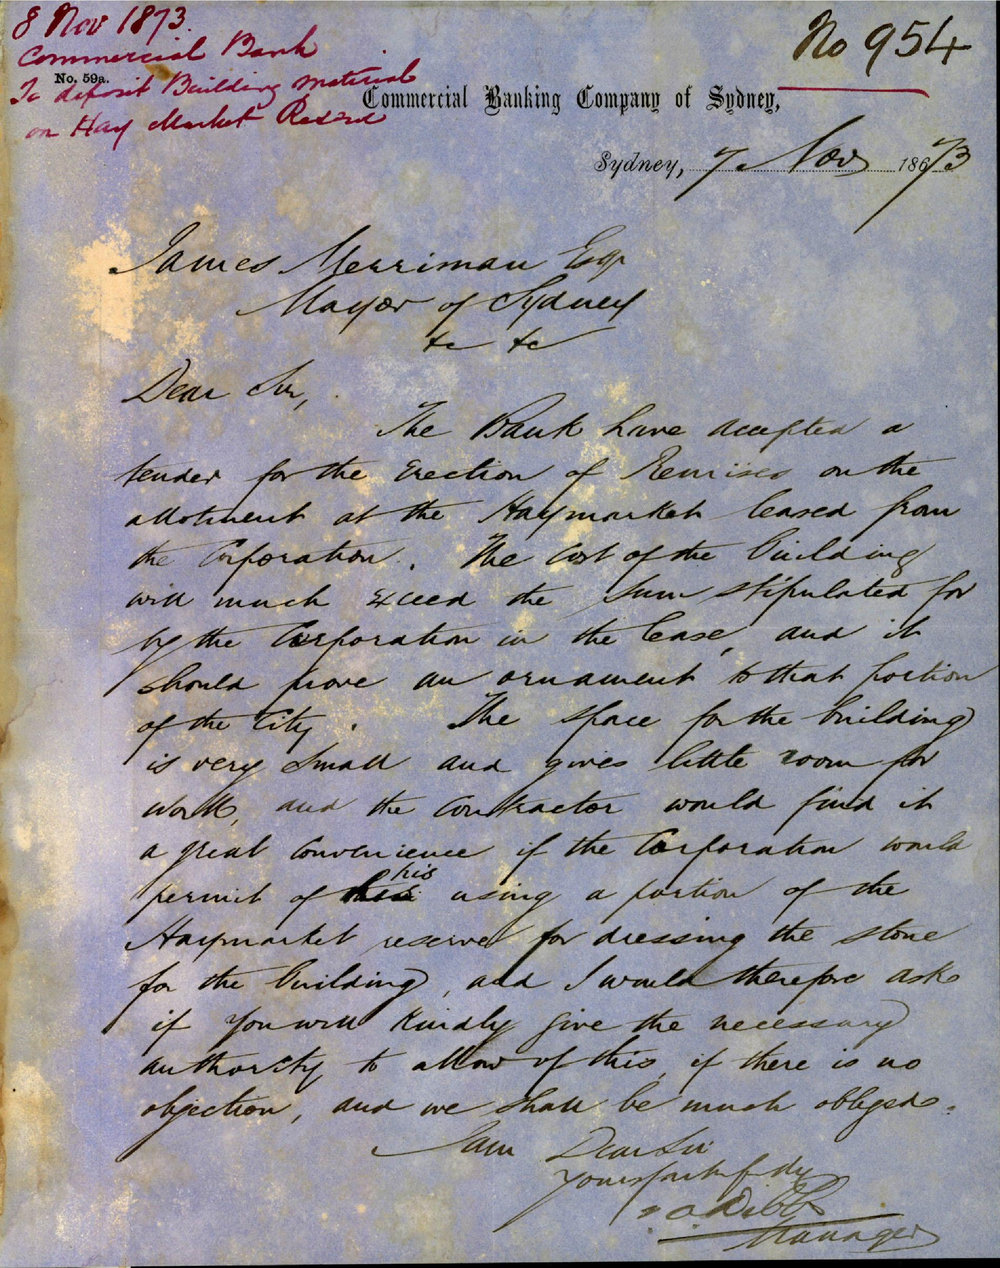 8 Nov 1873.
Commercial Bank
No. 59a.
To deposit Building material
on Hay Market Reserve
No 954
Commercial Banking Company of Sydney,
Sydney, 7 Nov 1873
James Merriman Esqr
Mayor of Sydney
&c &c
Dear Sir,
The Bank have accepted a
tender for the erection of Premises on the
allotment at the Haymarket leased from
the Corporation. The cost of the building
will much exceed the sum stipulated for
by the Corporation in the lease, and it
should prove an ornament to that portion
of the City. The space for the building
is very small and gives little room for
work, and the contractor would find it
a great convenience if the Corporation would
permit of his using a portion of the
Haymarket reserve for dressing the stone
for the building, and I would therefore ask
if you will kindly give the necessary
authority to allow of this, if there is no
objection, and we shall be much obliged.
I am Dear Sir
Yours faithfully
Dibbs
Manager